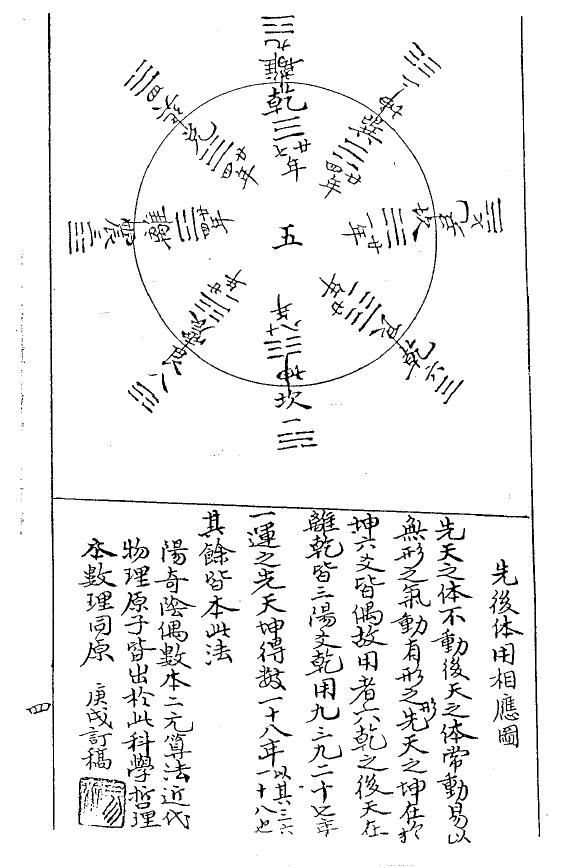 離九
乾
廿七年
坤二
巽
廿四年
兌七
坎
廿一年
乾六
艮
廿一年
坎一
坤
十八年
艮八
震
廿一年
震三
離
廿四年
巽四
兌
廿四年
五
先後体用相應圖
先天之体不動後天之体常動易以
無形之氣動有形之形先天之坤在於
坤六爻皆偶故用者六乾之後天在
離乾皆三陽爻乾用九三九二十七年
一運之先天坤得数一十八年以其三六一十八也
其餘皆本此法
陽奇陰偶數本二元算法近代
物理原子皆出於此科學哲理
本數理同原 庚戌訂稿
四